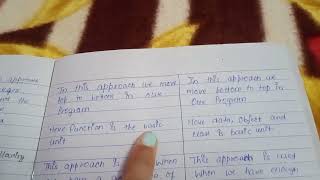 In this approach we move
top to bottom in our
Program
Here function is the basic
unit
This approach is when
In this approach we
move bottom to top in
Our Program
Here data, object and
class is basic unit.
This approach is used
when we have enough
approach
the